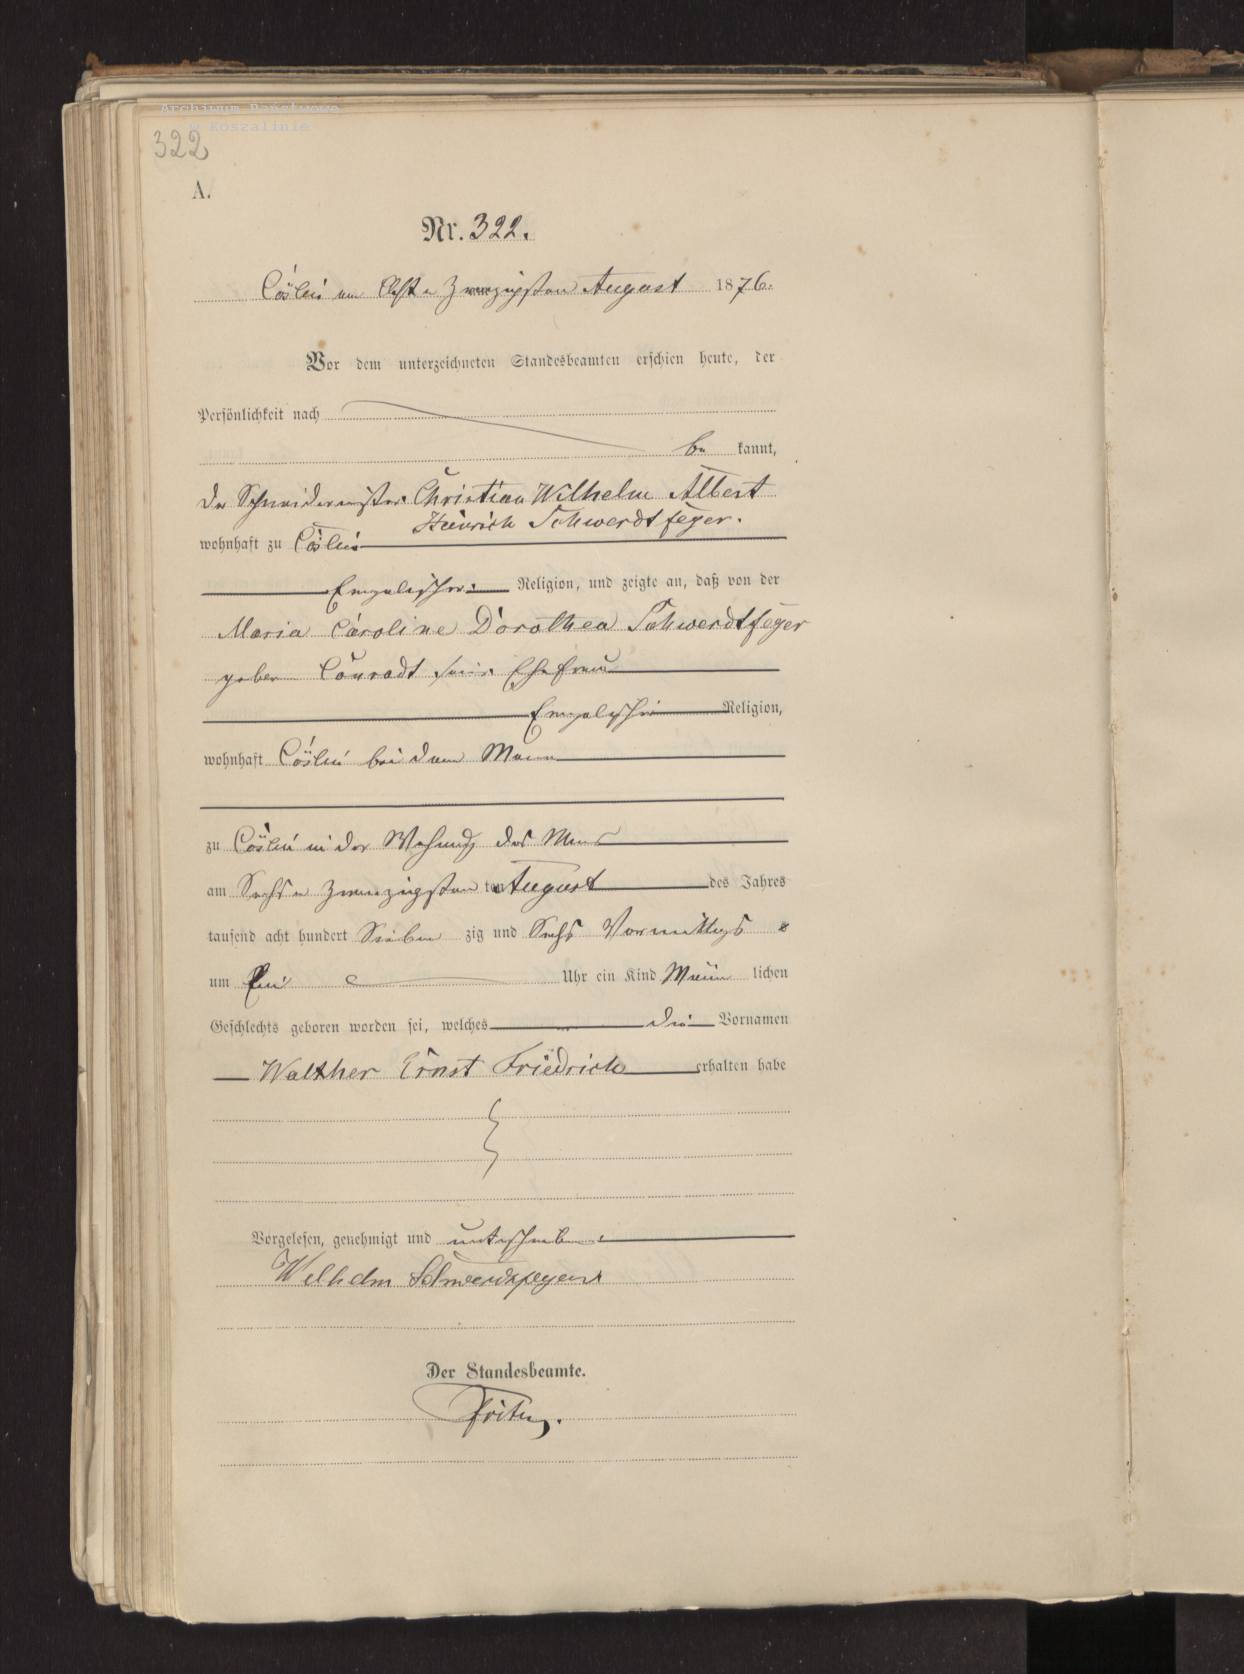 Archiwum Państwowe
w Koszalinie
322
A.
Nr. 322.
Cöslin am Acht u Zwanzigsten August 1876.
Vor dem unterzeichneten Standesbeamten erschien heute, der
Persönlichkeit nach
be kannt,
der Schneidermeister Christian Wilhelm Albert
Heinrich Schwerdtfeger.
wohnhaft zu Cöslin
Evangelischer Religion, und zeigte an, daß von der
Maria Caroline Dorothea Schwerdtfeger
geboren Conradt seiner Ehefrau
Evangelischer Religion,
wohnhaft Cöslin bei dem Mann
zu Cöslin in der Wohnung des Mannes
am Sechs u Zwanzigsten ten August des Jahres
tausend acht hundert Sieben zig und Sechs Vormittags
um Ein Uhr ein Kind Männ lichen
Geschlechts geboren worden sei, welches die Vornamen
Walther Ernst Friedrich erhalten habe
Vorgelesen, genehmigt und unterschrieben:
Wilhelm Schwerdtfeger
Der Standesbeamte.